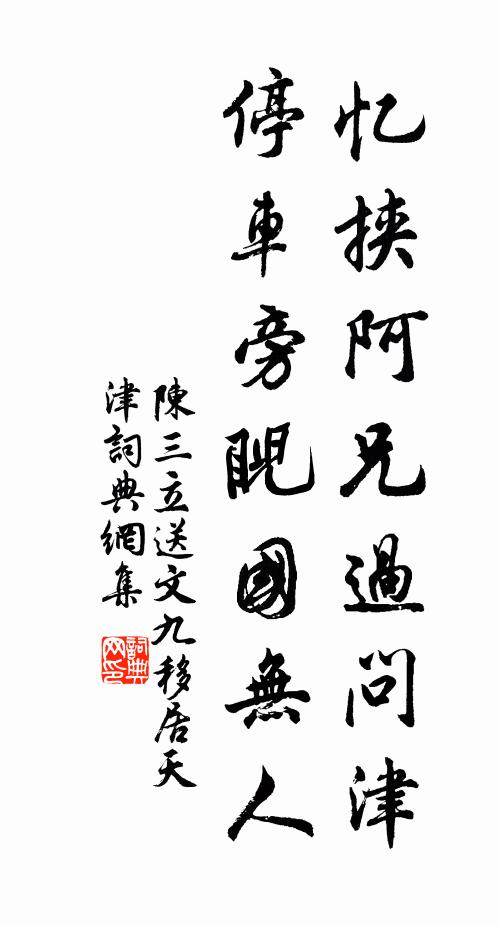 忆挟阿兄過问津
停車旁睨國無人
陳三立送文九移居天
津詞典網集
詞典
网印